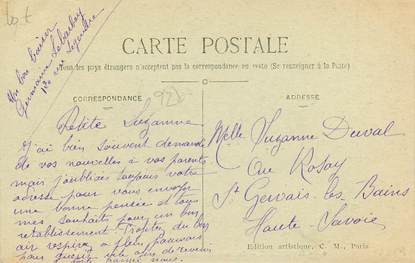 Un bon baiser
Germaine
CARTE POSTALE
Tous les pays étrangers n'acceptent pas la correspondance au recto (Se renseigner à la Poste)
CORRESPONDANCE
Petite Suzanne
J'ai bien souvent demandé
de vos nouvelles à vos parents
mais j'oubliais toujours votre
adresse pour vous envoyer
une bonne pensée et tous
mes souhaits pour un bon
rétablissement. Profitez du bon
air respirez à pleins poumons
pour guérir vite afin de revenir
parmi nous.
ADRESSE
Melle Suzanne Duval
Rosay
St Gervais les Bains
Haute-Savoie
Edition artistique, C. M., Paris